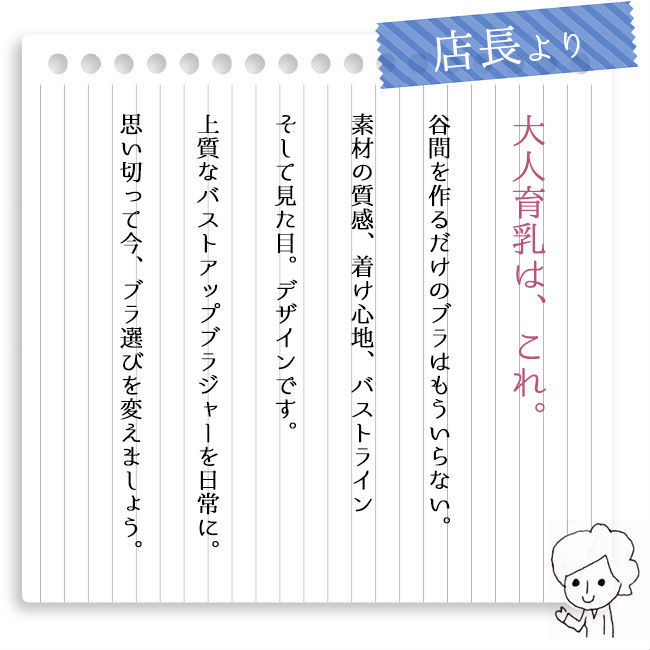 店長より
大人育乳は、これ。
谷間を作るだけのブラはもういらない。
素材の質感、着け心地、バストライン
そして見た目。デザインです。
上質なバストアップブラジャーを日常に。
思い切って今、ブラ選びを変えましょう。